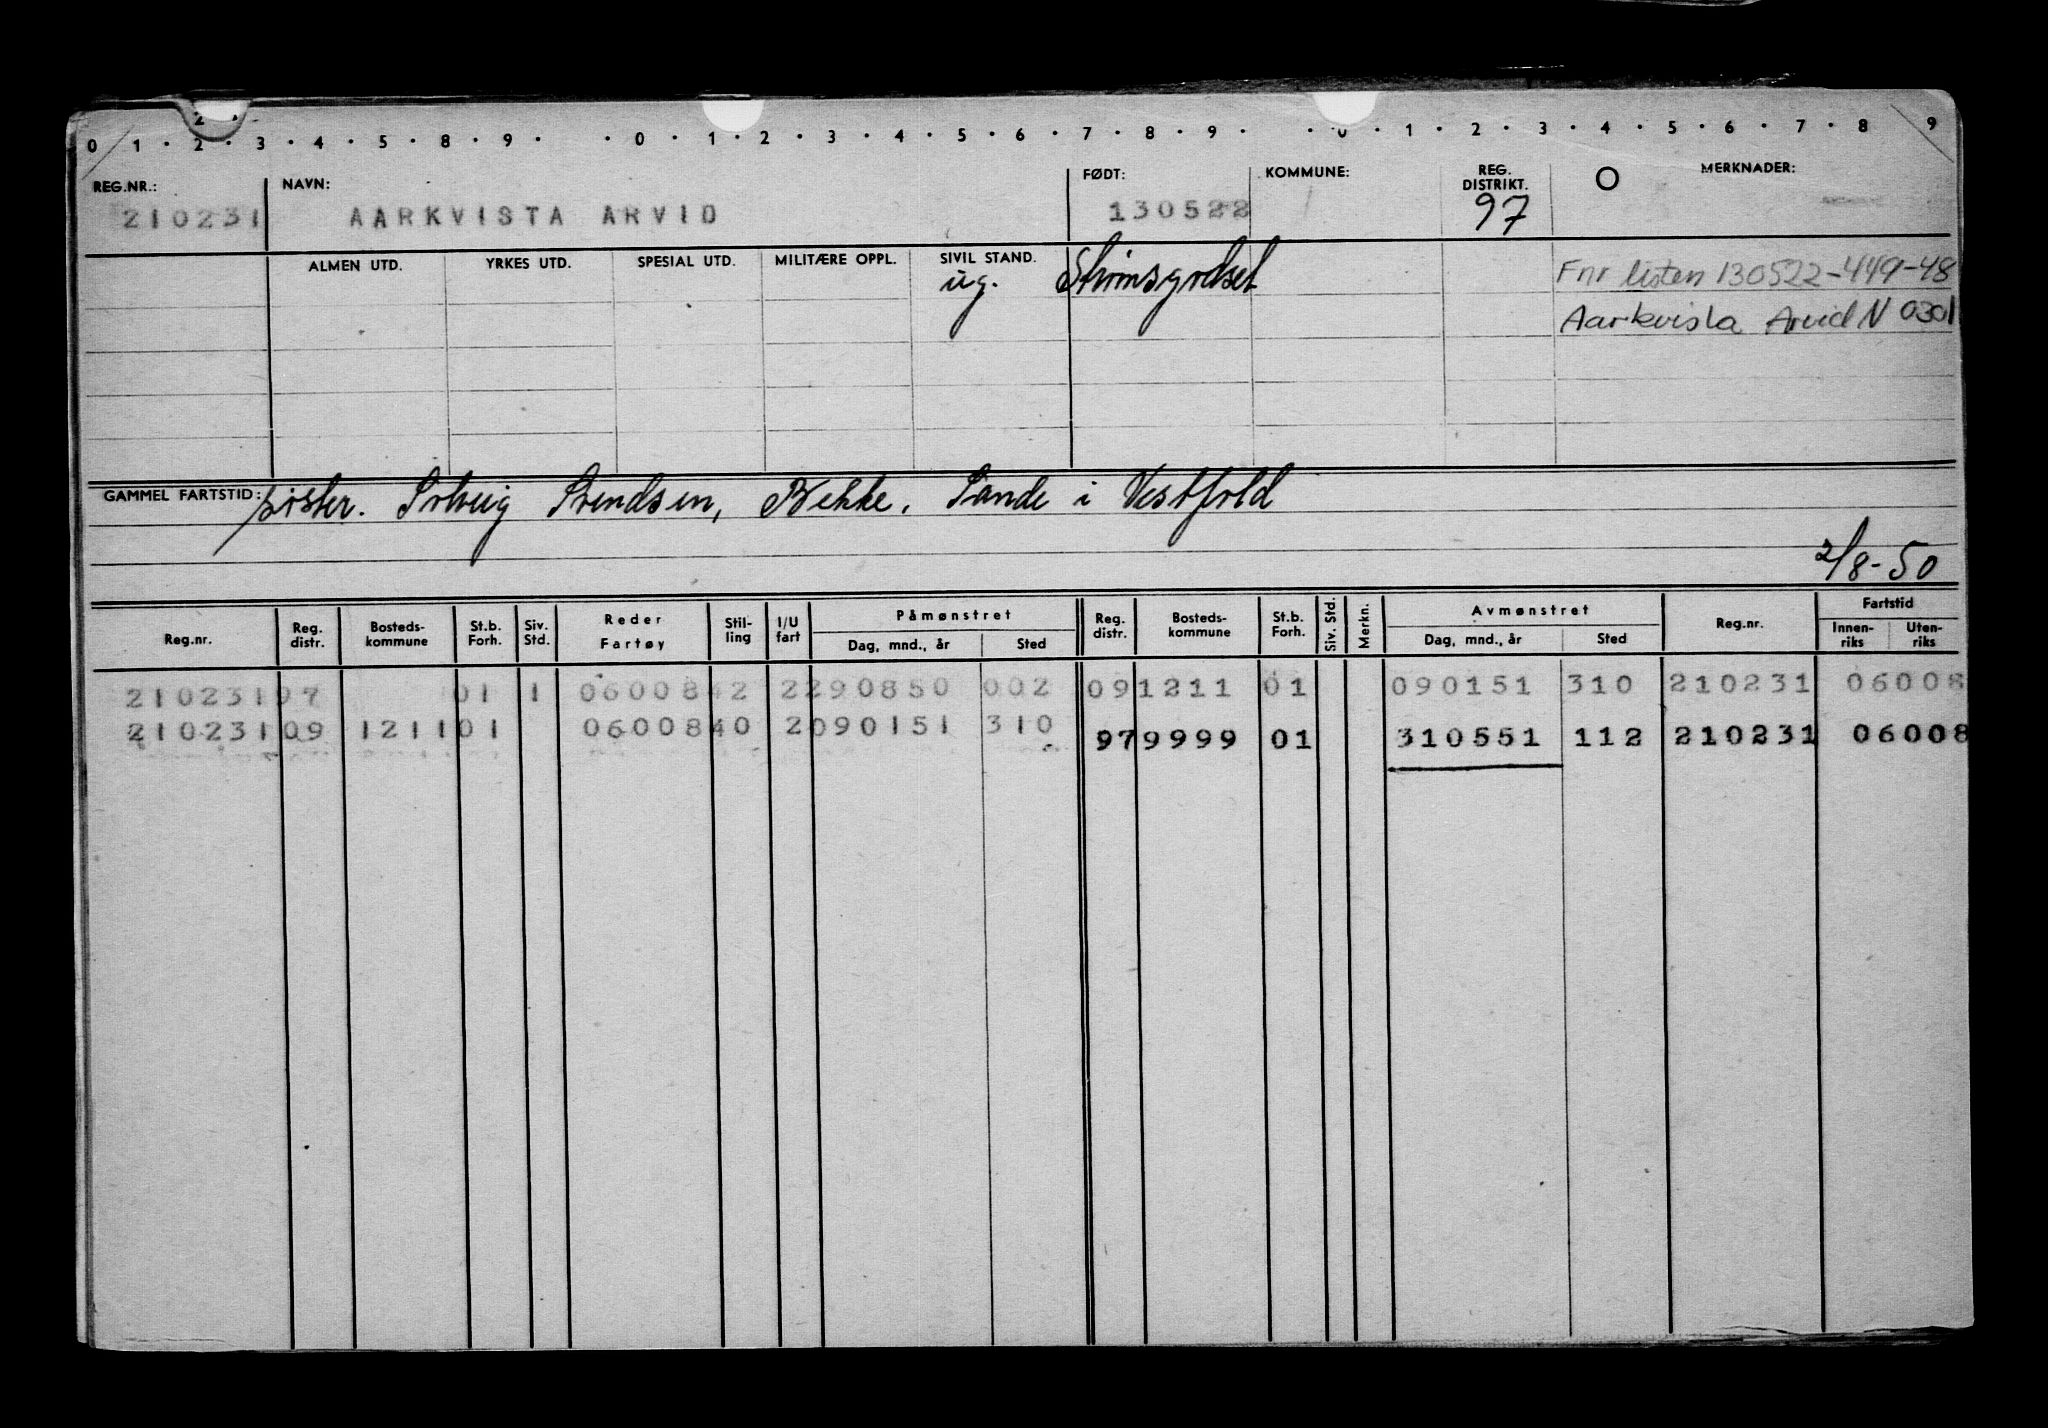 2
0 1 · 2 · 3 · 4 · 5 · 8 · 9 · · 0 · 1 · 2 · 3 · 4 · 5 · 6 · 7 · 8 · 9 · · 0 · 1 · 2 · 3 · 4 · 5 · 6 · 7 · 8 9
REG.NR.: NAVN: FØDT: KOMMUNE: REG. DISTRIKT. O MERKNADER:
210231 AARKVISTA ARVID 130522 97
ALMEN UTD. YRKES UTD. SPESIAL UTD. MILITÆRE OPPL. SIVIL STAND.
ug. Strömsgodset Fnr listen 130522-449-48
Aarkvisla Arvid N 0301
GAMMEL FARTSTID: søster. Solveig Svendsen, Bekke. Sande i Vestfold
2/8-50
Reg.nr. Reg. distr. Bosteds-kommune St.b. Forh. Siv. Std. Reder Fartøy Stil-ling I/U fart Påmønstret Dag, mnd., år Sted Reg. distr. Bosteds-kommune St.b. Forh. Siv. Std. Merkn. Avmønstret Dag, mnd., år Sted Reg.nr. Fartstid Innen-riks Uten-riks
210231 97 01 1 06008 42 2 290850 002 09 1211 01 090151 310 210231 06008
210231 09 1211 01 06008 40 2 090151 310 97 9999 01 310551 112 210231 06008